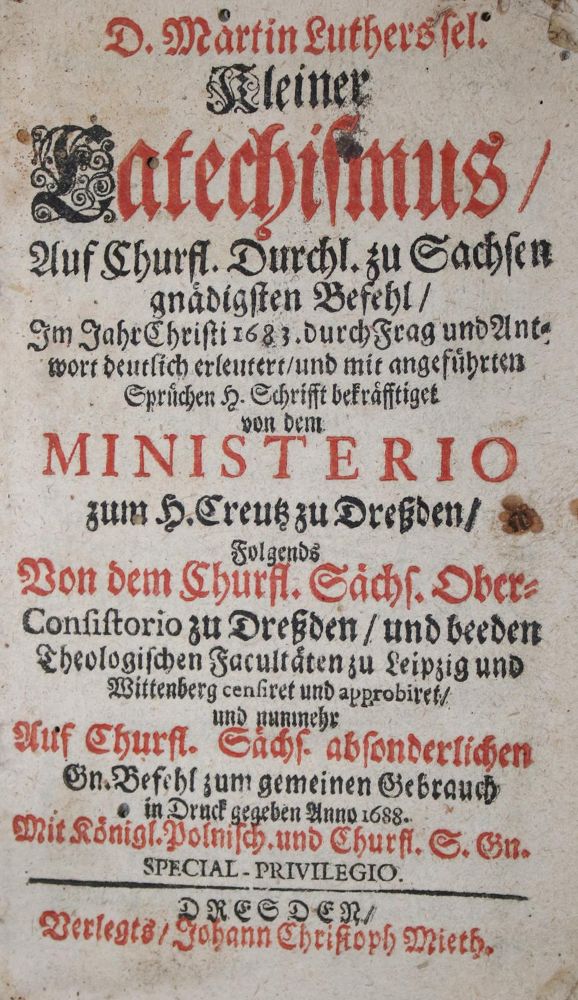 D. Martin Luthers sel.
Kleiner
Catechismus/
Auf Churfl. Durchl. zu Sachsen
gnädigsten Befehl/
Im Jahr Christi 1683. durch Frag und Ant-
wort deutlich erleutert/und mit angeführten
Sprüchen H. Schrifft bekräfftiget
von dem
MINISTERIO
zum H. Creutz zu Dreßden/
Folgends
Von dem Churfl. Sächs. Ober-
Consistorio zu Dreßden/und beeden
Theologischen Facultäten zu Leipzig und
Wittenberg censiret und approbiret/
und nunmehr
Auf Churfl. Sächs. absonderlichen
Gn. Befehl zum gemeinen Gebrauch
in Druck gegeben Anno 1688.
Mit Königl. Polnisch. und Churfl. S. Gn.
SPECIAL-PRIVILEGIO.
DRESDEN/
Verlegts/Johann Christoph Mieth.